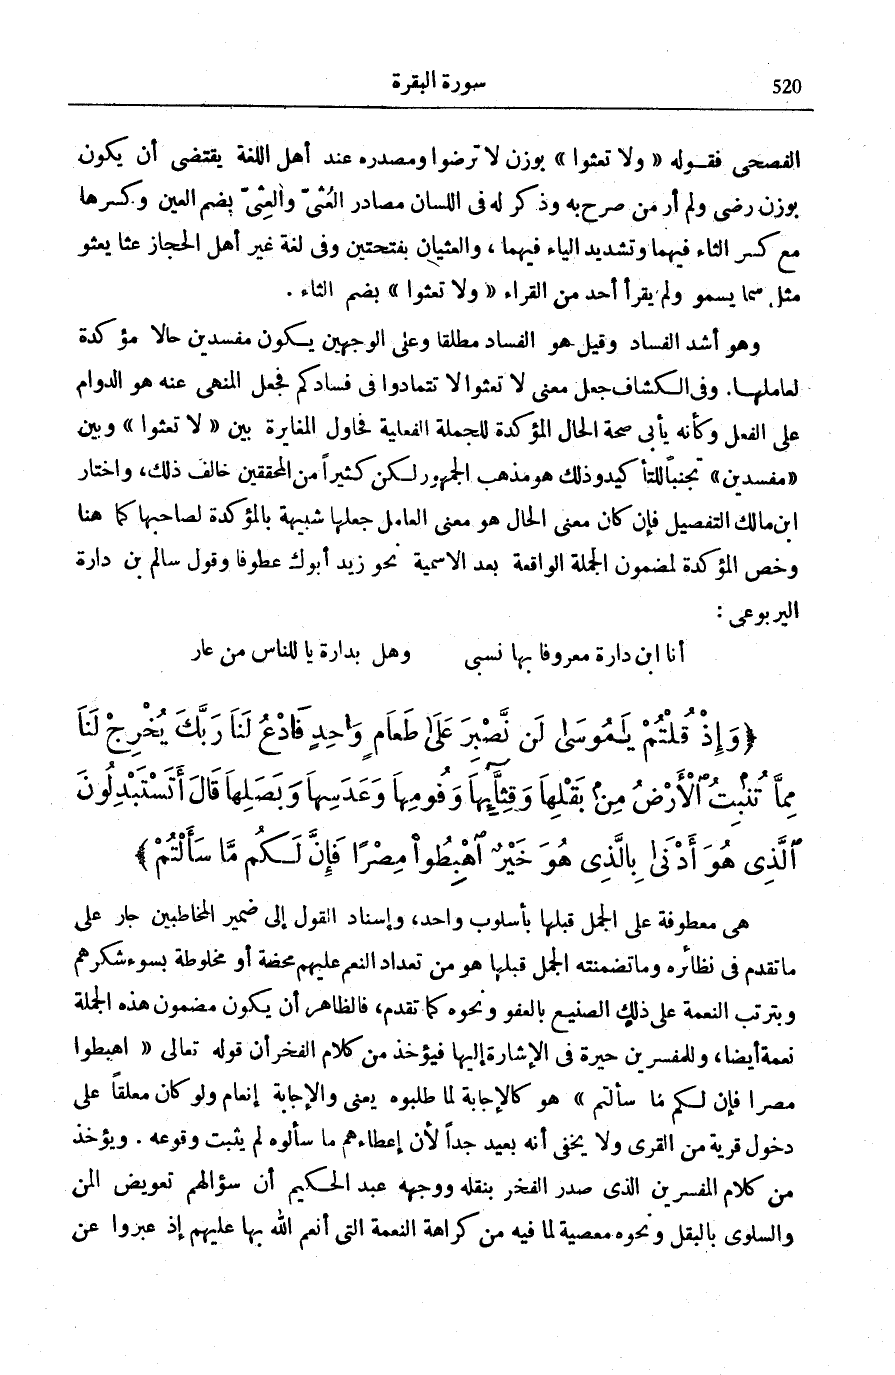 520
سورة البقرة
الفصحى فقوله « ولا تعثوا » بوزن لا ترضوا ومصدره عند أهل اللغة يقتضى أن يكون
بوزن رضى ولم أر من صرح به وذكر له فى اللسان مصادر العُثىّ والعِثىّ بضم العين وكسرها
مع كسر الثاء فيهما وتشديد الياء فيهما ، والعثيان بفتحتين وفى لغة غير أهل الحجاز عثا يعثو
مثل سما يسمو ولم يقرأ أحد من القراء « ولا تعثوا » بضم الثاء .
وهو أشد الفساد وقيل هو الفساد مطلقا وعلى الوجهين يكون مفسدين حالا مؤكدة
لعاملها. وفى الكشاف جعل معنى لا تعثوا لا تتمادوا فى فسادكم فجعل المنهى عنه هو الدوام
على الفعل وكأنه يأبى صحة الحال المؤكدة للجملة الفعلية فحاول المغايرة بين « لا تعثوا » وبين
«مفسدين» تجنباً للتأكيد وذلك هو مذهب الجمهور لكن كثيراً من المحققين خالف ذلك، واختار
ابن مالك التفصيل فإن كان معنى الحال هو معنى العامل جعلها شبيهة بالمؤكدة لصاحبها كما هنا
وخص المؤكدة لمضمون الجملة الواقعة بعد الاسمية نحو زيد أبوك عطوفا وقول سالم بن دارة
اليربوعى :
أنا ابن دارة معروفا بها نسبى وهل بدارة يا للناس من عار
﴿وَإِذْ قُلْتُمْ يَٰمُوسَىٰ لَن نَّصْبِرَ عَلَىٰ طَعَامٍ وَٰحِدٍ فَادْعُ لَنَا رَبَّكَ يُخْرِجْ لَنَا
مِمَّا تُنۢبِتُ ٱلْأَرْضُ مِنۢ بَقْلِهَا وَقِثَّآئِهَا وَفُومِهَا وَعَدَسِهَا وَبَصَلِهَا قَالَ أَتَسْتَبْدِلُونَ
ٱلَّذِى هُوَ أَدْنَىٰ بِالَّذِى هُوَ خَيْرٌ ٱهْبِطُوا۟ مِصْرًا فَإِنَّ لَكُم مَّا سَأَلْتُمْ﴾
هى معطوفة على الجمل قبلها بأسلوب واحد، وإسناد القول إلى ضمير المخاطبين جار على
ما تقدم فى نظائره وما تضمنته الجمل قبلها هو من تعداد النعم عليهم محضة أو مخلوطة بسوء شكرهم
وبترتب النعمة على ذلك الصنيع بالعفو ونحوه كما تقدم، فالظاهر أن يكون مضمون هذه الجملة
نعمة أيضا، وللمفسرين حيرة فى الإشارة إليها فيؤخذ من كلام الفخر أن قوله تعالى « اهبطوا
مصرا فإن لكم مّا سألتم » هو كالإجابة لما طلبوه يعنى والإجابة إنعام ولو كان معلقاً على
دخول قرية من القرى ولا يخفى أنه بعيد جداً لأن إعطاءهم ما سألوه لم يثبت وقوعه . ويؤخذ
من كلام المفسرين الذى صدر الفخر بنقله ووجهه عبد الحكيم أن سؤالهم تعويض المن
والسلوى بالبقل ونحوه معصية لما فيه من كراهة النعمة التى أنعم الله بها عليهم إذ عبروا عن